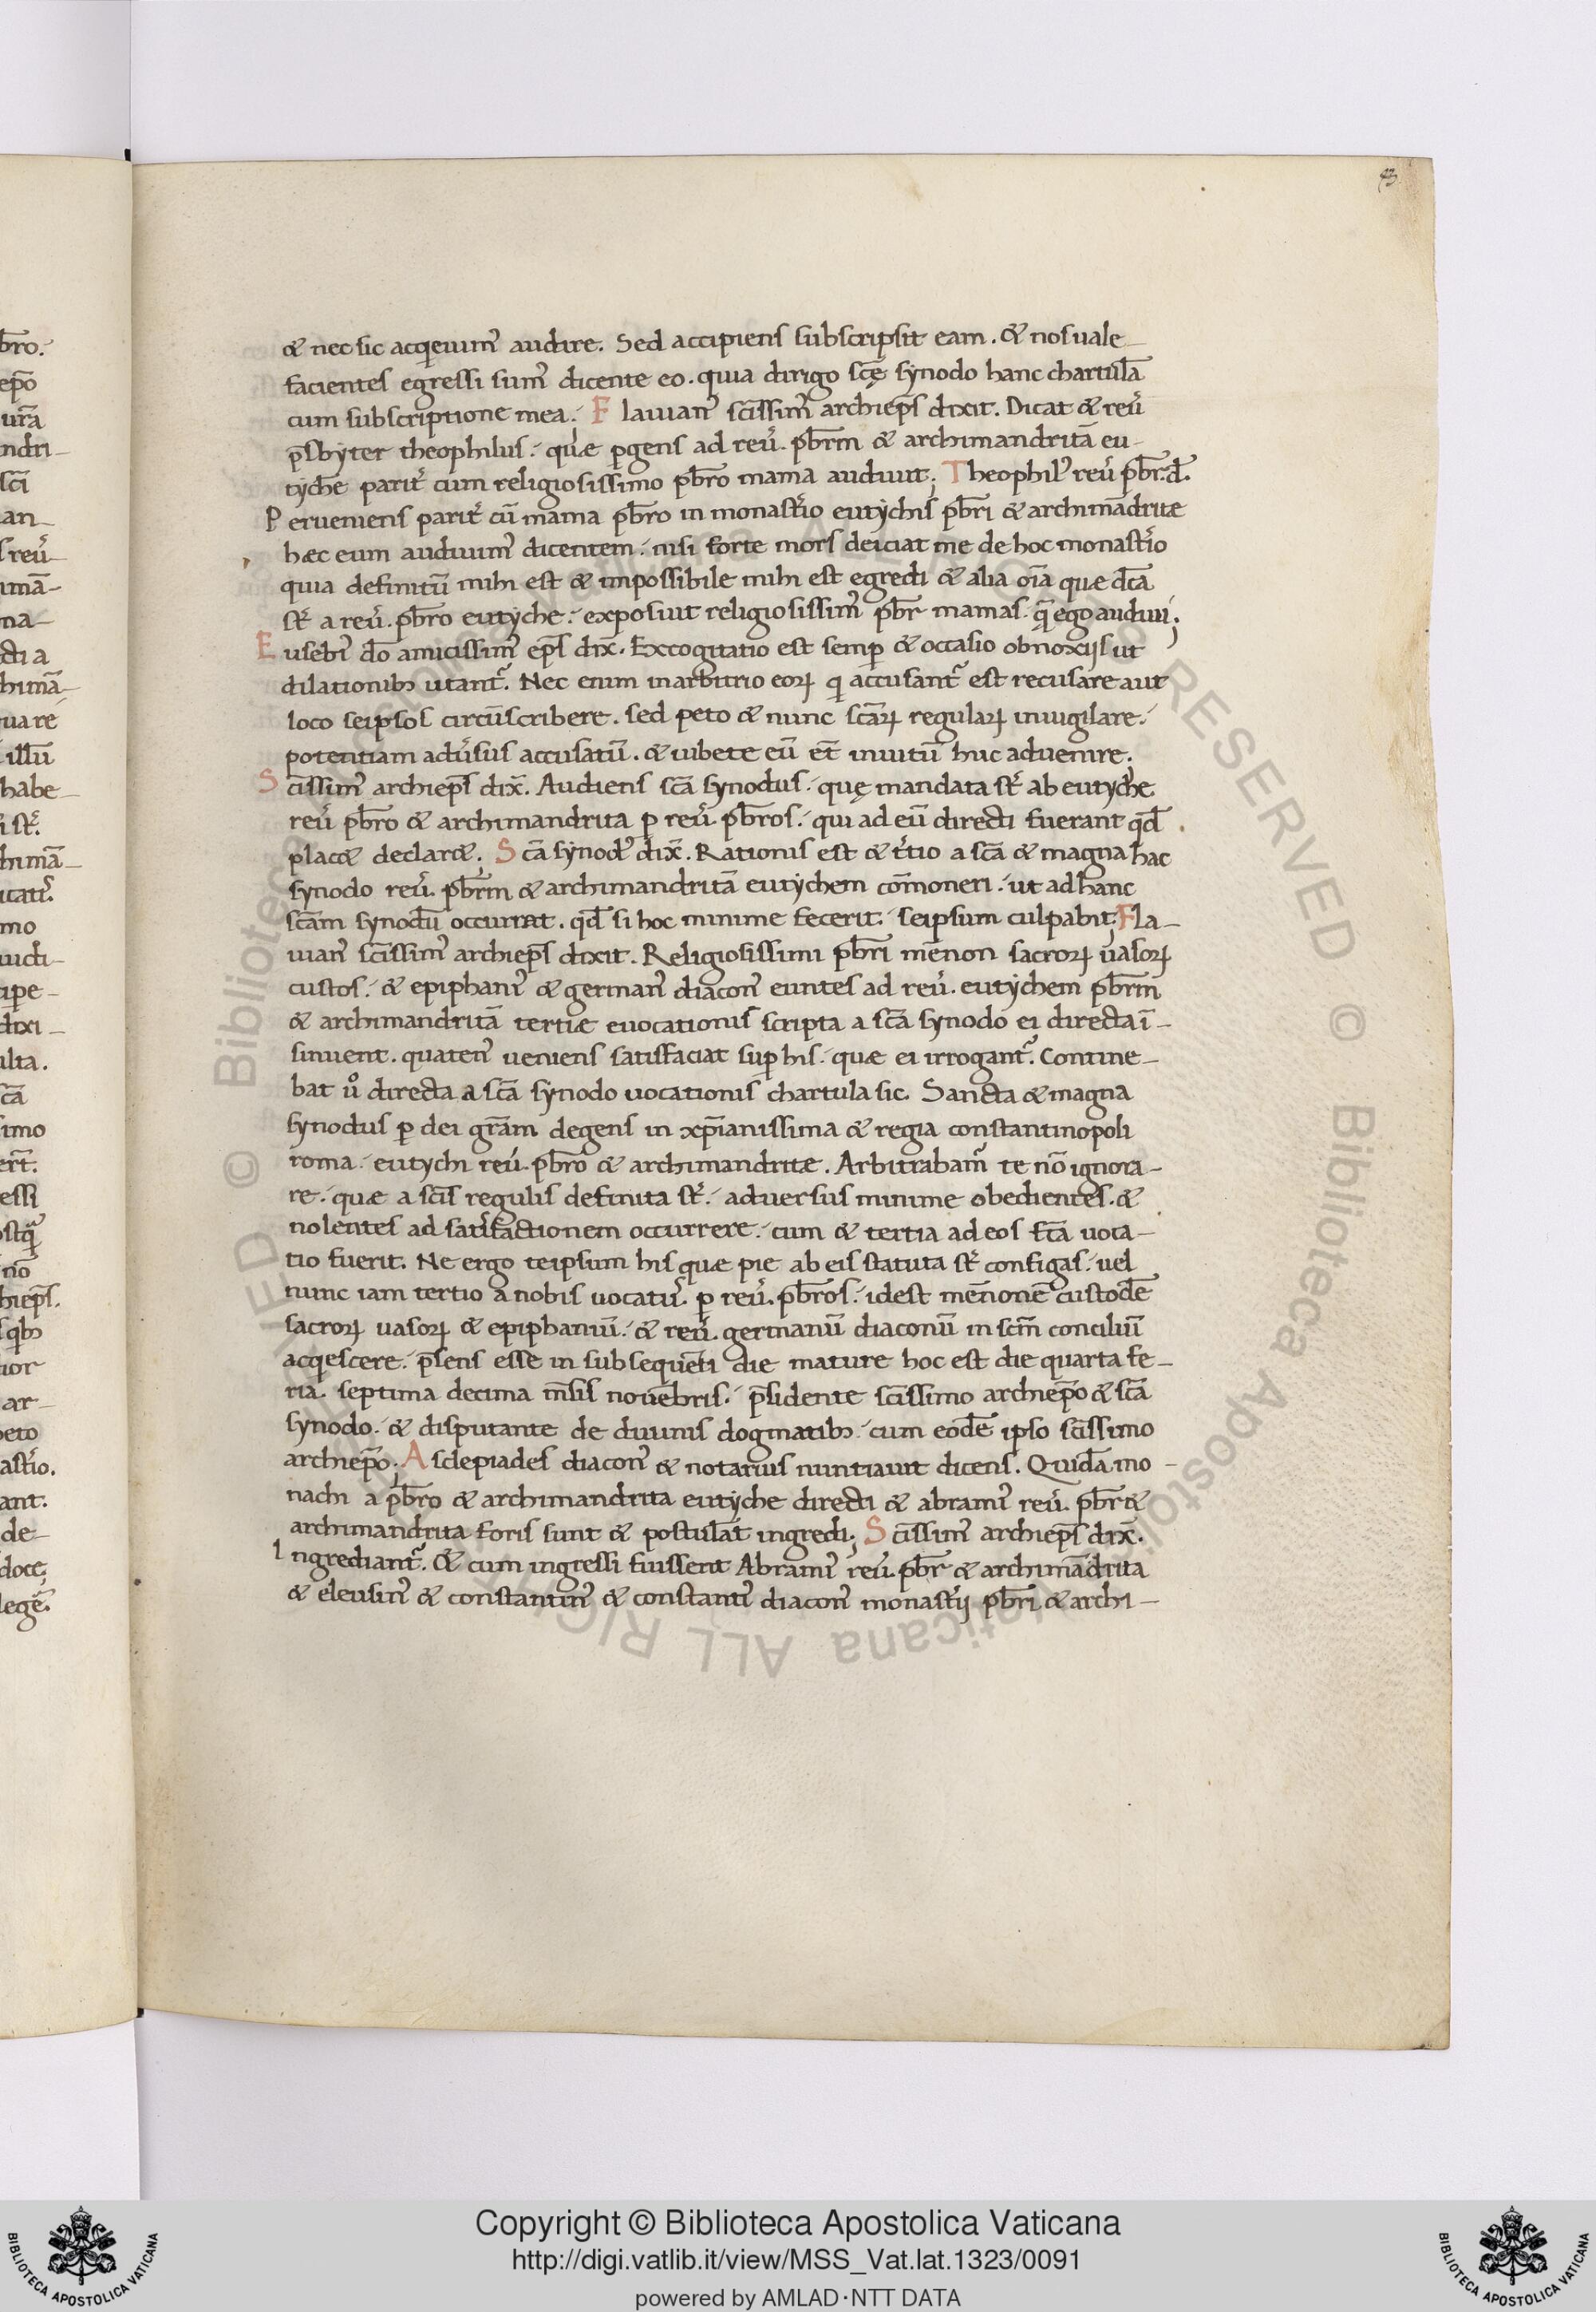 43
& nec sic acqeuim᾿ audire. Sed accipiens subscripsit eam. & nos uale-
facientes egressi sum᾿ dicente eo. quia dirigo scę̄ synodo hanc chartulā
cum subscriptione mea. Flauian᾿ scīssim᾿ archiep̄s dixit. Dicat & reu᾿
p̄sbyter theophilus. quae ꝑgens ad reu᾿. pb̄rm & archimandritā eu-
tychē parit᾿ cum religiosissimo pb̄ro mama audiuit; Theophil᾿ reu᾿ pb̄r. d̄.
Perueniens parit᾿ cū mama pb̄ro in monast᾿io eutychis pb̄ri & archimādritae
haec eum audiuim᾿ dicentem. nisi forte mors deiciat me de hoc monast᾿io
quia definitū mihi est & impossibile mihi est egredi & alia oīa quae dc̄a
st᾿ a reu᾿. pb̄ro eutyche. exposuit religiosissim᾿ pb̄r mamas. q̄ ego audiui;
Eusebi᾿ dō amicissim᾿ ep̄s dix̄. Excogitatio est semꝑ & occasio obnoxijs ut
dilationib; utant᾿. Nec enim in arbitrio eoꝝ qi accusant᾿ est recusare aut
loco seipsos circūscribere. sed peto & nunc scāꝝ regulaꝝ inuigilare.
potentiam adu᾿sus accusatū. & iubete eū et̄ inuitū huc aduenire;
Scīssim᾿ archiep̄s dix̄. Audiens scā synodus. quę mandata st᾿ ab eutyche
reu᾿ pb̄ro & archimandrita ꝑ reu᾿. pb̄ros. qui ad eū directi fuerant qd̄
plac& declar&; Scā synod᾿ dix̄. Rationis est & t᾿tio a scā & magna hac
synodo reu᾿. pb̄rm & archimandritā eutychem cōmoneri. ut ad hanc
scām synodū occurrat. qd̄ si hoc minime fecerit. seipsum culpabit; Fla-
uian᾿ scīssim᾿ archiep̄s dixit. Religiosissimi pb̄ri mēnon sacroꝝ uasoꝝ
custos. & epiphani᾿ & german᾿ diacon᾿ euntes ad reu᾿. eutychem pb̄rm
& archimandritā tertiae euocationis scripta a scā synodo ei directa ī-
sinuent. quaten᾿ ueniens satisfaciat suꝑ his. quae ei irrogant᾿. Contine-
bat uͦ directa a scā synodo uocationis chartula sic. Sancta & magna
synodus ꝑ dei grām degens in xp̄ianissima & regia constantinopoli
roma. eutychi reu᾿. pb̄ro & archimandritae. Arbitrabam᾿ te nō ignora-
re. quae a scīs regulis definita st᾿. aduersus minime obedientes. &
nolentes ad satisfactionem occurrere. cum & tertia ad eos fc̄a uoca-
tio fuerit. Ne ergo teipsum his quae pie ab eis statuta st᾿ configas. uel
nunc iam tertio a nobis uocat᾿. ꝑ reu᾿. pb̄ros. idest mēnonē custodē
sacroꝝ uasoꝝ & epiphaniū. & reu᾿. germanū diaconū in scm̄ conciliū
acqiescere. p̄sens esse in subsequēti die mature hoc est die quarta fe-
ria. septima decima m̄sis nouēbris. p̄sidente scīssimo archiep̄o & scā
synodo. & disputante de diuinis dogmatib;. cum eodē ipso scīssimo
archiep̄o; Asclepiades diacon᾿ & notarius nuntiauit dicens. Quidā mo-
nachi a pb̄ro & archimandrita eutyche directi & abrami᾿ reu᾿. pb̄r &
archimandrita foris sunt & postulāt ingredi; Scīssim᾿ archiep̄s dix̄.
Ingrediant᾿. & cum ingressi fuissent Abrami᾿ reu᾿. pb̄r & archimādrita
& eleusin᾿ & constantin᾿ & constanti᾿ diacon᾿ monast᾿ij pb̄ri & archi-
Copyright © Biblioteca Apostolica Vaticana
http://digi.vatlib.it/view/MSS_Vat.lat.1323/0091
powered by AMLAD·NTT DATA
BIBLIOTECA APOSTOLICA VATICANA
BIBLIOTECA APOSTOLICA VATICANA